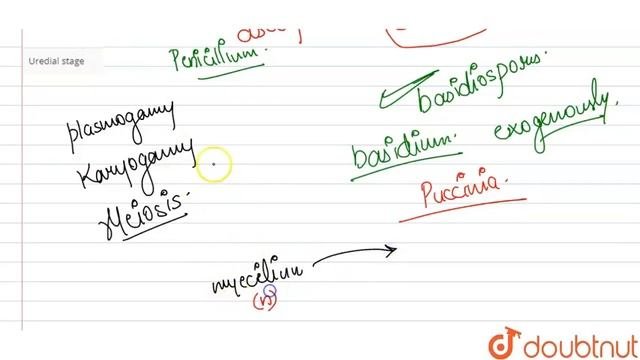 Uredial stage
Penicillium.
plasmogamy
Karyogamy
Meiosis.
basidiospores.
basidium. exogenously.
Puccinia.
mycelium
(n)
doubtnut